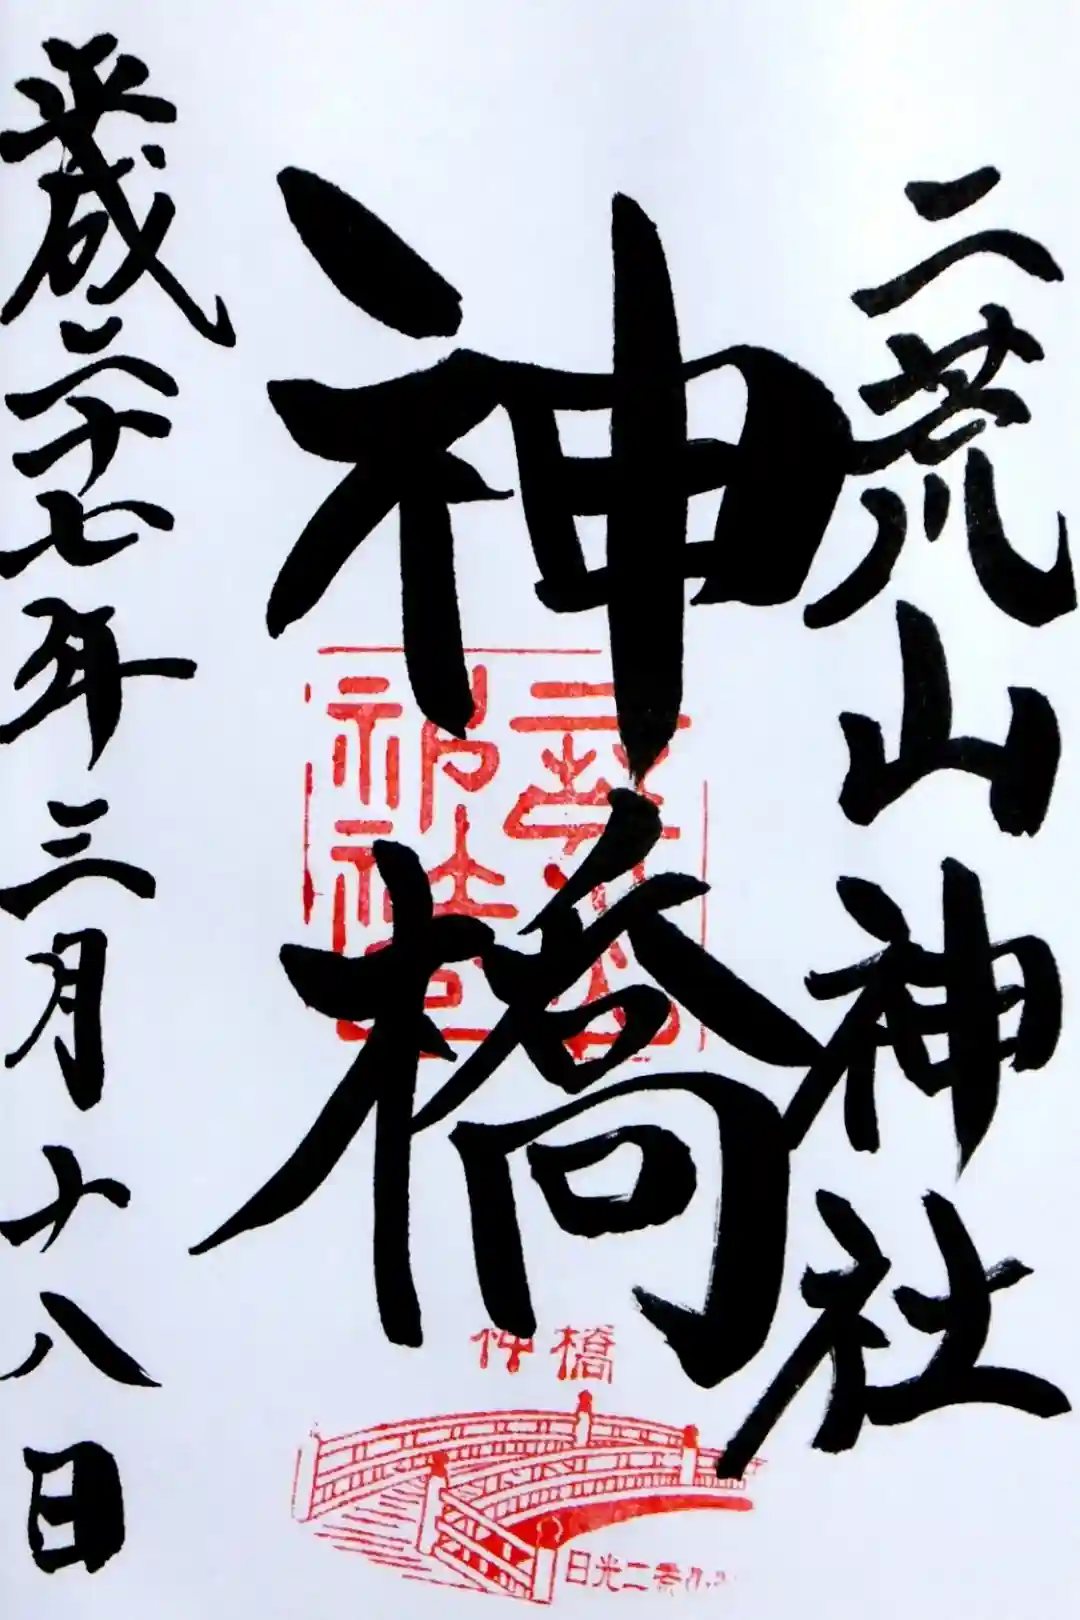 二荒山神社
神橋
平成二十七年三月十八日
二荒山
神社
神橋
日光二荒山